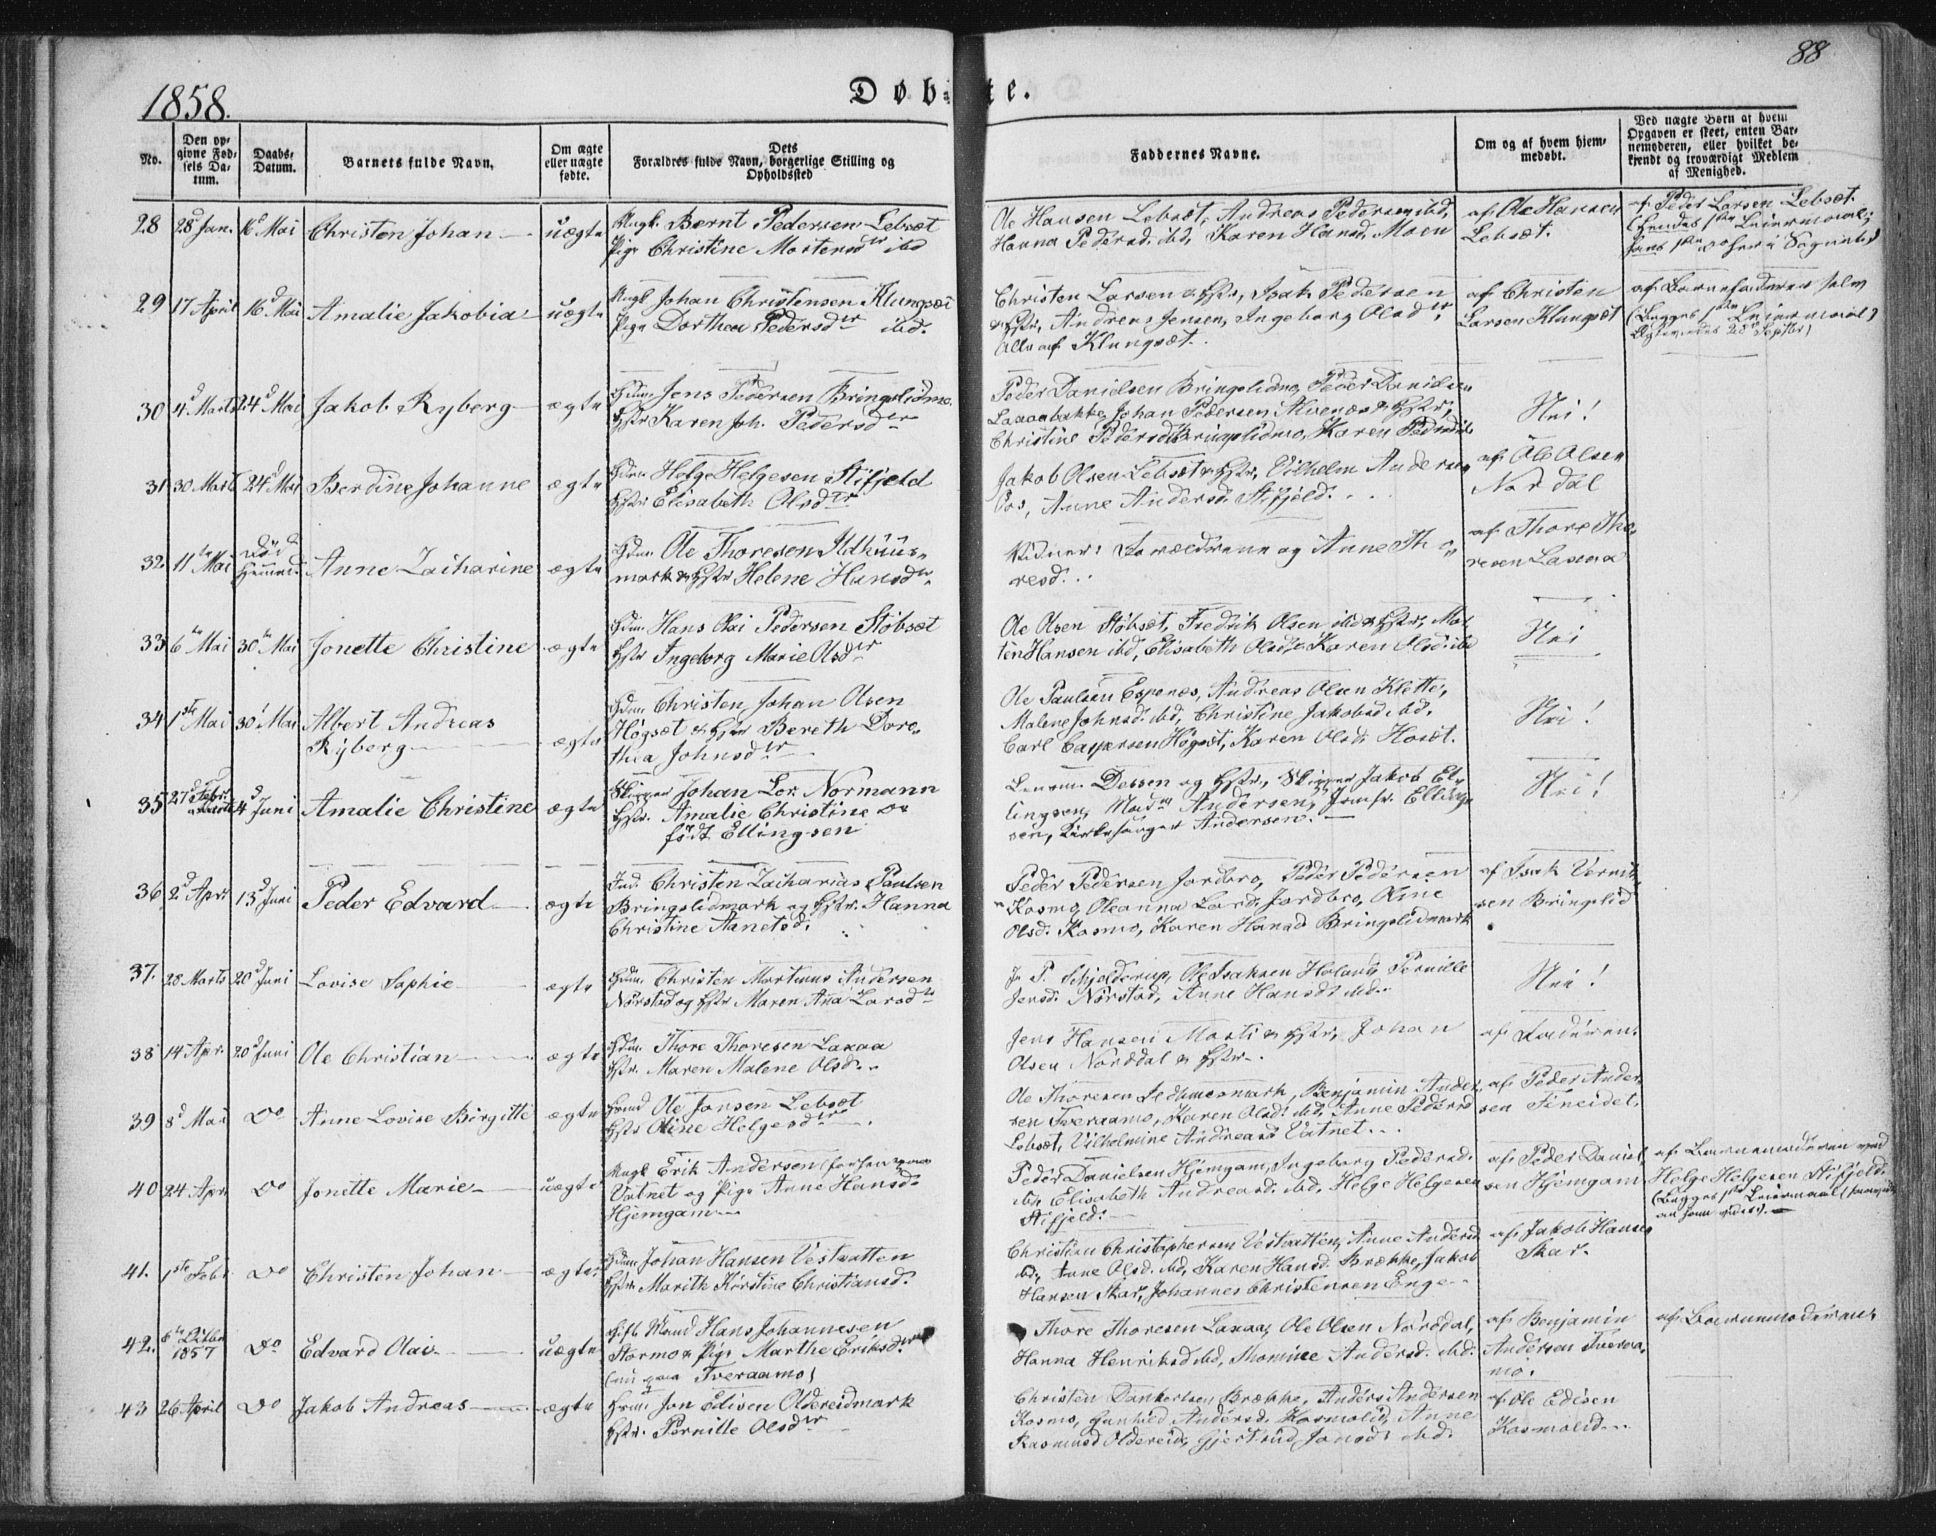 88
1858.
Døbte.
No.
Den opgivne Fødsels Datum.
Daabs-Datum.
Barnets fulde Navn.
Om ægte eller uægte fødte.
Dets Forældres fulde Navn, borgerlige Stilling og Opholdssted
Faddernes Navne.
Om og af hvem hjemmedøbt.
Ved uægte Børn af hvem Opgaven er skeet, enten Barnemoderen, eller hvilket bekjendt og troværdigt Medlem af Menighed.
28 28 Jan. 16 Mai Christen Johan uægte Ungk. Bernt Pedersen Lebsæt
Pige Christine Mortensdr ibd
Ole Hansen Lebsæt, Andreas Pedersen ibd,
Hanna Pedersd. ibd, Karen Hansd. Moen
af Ole Hansen
Lebsæt.
af Peder Larsen Lebsæt.
29 17 April 16 Mai Amalie Jakobia uægte Ungk. Johan Christensen Klungsæt
Pige Dorthea Pedersdr ibd.
Christen Larsen & Hstr, Isak Pedersen
& Hstr, Andreas Jensen, Ingeborg Olsdr
Alle af Klungsæt.
af Christen
Larsen Klungsæt
af Barnefaderen selv
30 4 Marts 24 Mai Jakob Ryberg ægte Gdm. Jens Pedersen Bringslidmo.
Hstr Karen Joh. Pedersdr
Peder Danielsen Bringslidmo, Peder Danielsen
Laxaabakke, Johan Pedersen & Hstr,
Christine Pedersd. Bringslidmo, Karen Pedersd. ib.
Nei!
31 30 Marts 24 Mai Berdine Johanne ægte Gdm. Helge Helgesen Stifjeld
Hstr Elisabeth Olsdr
Jakob Olsen Lebsæt & Hstr, Vilhelm Andersen
Os, Anne Andersd. Stifjeld.
af Ole Olsen
Nordal
32. 11 Mai Død Hjemmed. Anne Zacharine ægte Gdm. Ole Thoresen Ildhuus-
mark & Hstr Helene Hansdr
Vidner: Forældrene og Anne Tho-
resd.
af Thore Tho-
resen Laxaa
33 6 Mai 30 Mai Jonette Christine ægte Gdm. Hans Olai Pedersen Støbsæt
Hstr Ingeborg Marie Olsdr
Ole Olsen Støbsæt, Fredrik Olsen ibd & Hstr, Mor-
ten Hansen ibd, Elisabeth Olsdr, Karen Olsd. ibd
Nei
34 1ste Mai 30 Mai Albert Andreas
Ryberg ægte
Gdm. Christen Johan Olsen
Høgsæt & Hstr Bereth Dore-
thea Johnsdr
Ole Paulsen Espenes, Andreas Olsen Klette,
Malene Johnsd. ibd, Christine Jakobsd. ibd.
Carl Caspersen Høgset, Karen Olsd. Hosæt.
Nei!
35 27 Febr. 4 Juni Amalie Christine ægte Skipper Johan Lor. Normann
Hstr. Amalie Christine
født Ellingsen
Lensm. Dossen og Hstr, Skipper Jakob El-
lingsen, Mad. Andersen, Jomfr. Elling-
sen, Kirkesanger Andersen.
Nei!
36 2 Apr. 13 Juni Peder Edvard ægte Ind. Christen Zacharias Paulsen
Bringslidmark og Hstr. Hanna
Christine Aanetsd.
Peder Pedersen Jordbro, Peder Pedersen
Kosmo, Oleanna Larsd. Jordbro, Oline
Olsd. Kosmo, Karen Hansd. Bringslidmark
af Isak Bernt-
sen Bringslid
37. 28 Marts 20 Juni Lovise Sophie ægte Gdm. Christen Martinus Andersen
Nørstad og Hstr Maren Ana Larsdr
P. Schjelderup, Ole Isaksen Holand, Pernille
Jensd. Nørstad, Anne Hansdr ibd.
Nei!
38 14 Apr. 20 Juni Ole Christian ægte Gdm. Thore Thoresen Laxaa
Hstr. Maren Malene Olsd.
Jens Hansen Mosti & Hstr, Johan
Olsen Norddal & Hstr.
af Faderen.
39 8 Mai Do Anne Lovise Birgitte ægte Grmd Ole Jonsen Lebsæt
Hstr Oline Helgesdr
Ole Thoresen Ildhuusmark, Benjamin Ander-
sen Tveraamo, Karen Olsd. ibd, Anne Pedersd
Lebsæt, Vilhelmine Andreasd Vatnet
af Peder Ander-
sen Fineidet.
40 24 Apr. Do Jonette Marie uægte Ungk. Erik Andersen
Vatnet og Pige Anne Hansd.
Hjemgam
Peder Danielsen Hjemgam, Ingeborg Pedersd.
ibd, Elisabeth Andreasd. ibd, Helge Helgesen
Stifjeld.
af Peder Daniel-
sen Hjemgam
af Barnemoderen ved
Helge Helgesen Stifjeld.
41. 1ste Febr Do Christen Johan ægte Gdm. Johan Hansen Vestvatten
Hstr. Marith Kirstine Christiansd.
Christian Christophersen Vestvatten, Anne Andersd
ibd, Anne Olsd. ibd, Karen Hansd. Brække, Jakob
Hansen Skar, Johannes Christensen Enge
af Jakob Hansen
Skar.
42. 6te Octbr 1857 Do Edvard Olai uægte Gift Mand Hans Johannesen
Stormo & Pige Marthe Eriksdr
(nu paa Tveraamo)
Thore Thoresen Laxaa, Ole Olsen Nordal,
Hanna Henriksd ibd, Thomine Andersd. ibd.
af Benjamin
Andersen Tveraa-
mo.
af Barnemoderen
43 26 April Do Jakob Andreas ægte Grm. Jon Edisen Oldereidmark
Hstr. Pernille Olsdr
Christen Dankertsen Brække, Anders Andersen
Kosmo, Gunhild Andersd. Kosmolid, Anne
Rasmusd Oldereid, Gjertrud Jonsd. ibd.
af Ole Edisen
Kosmolid